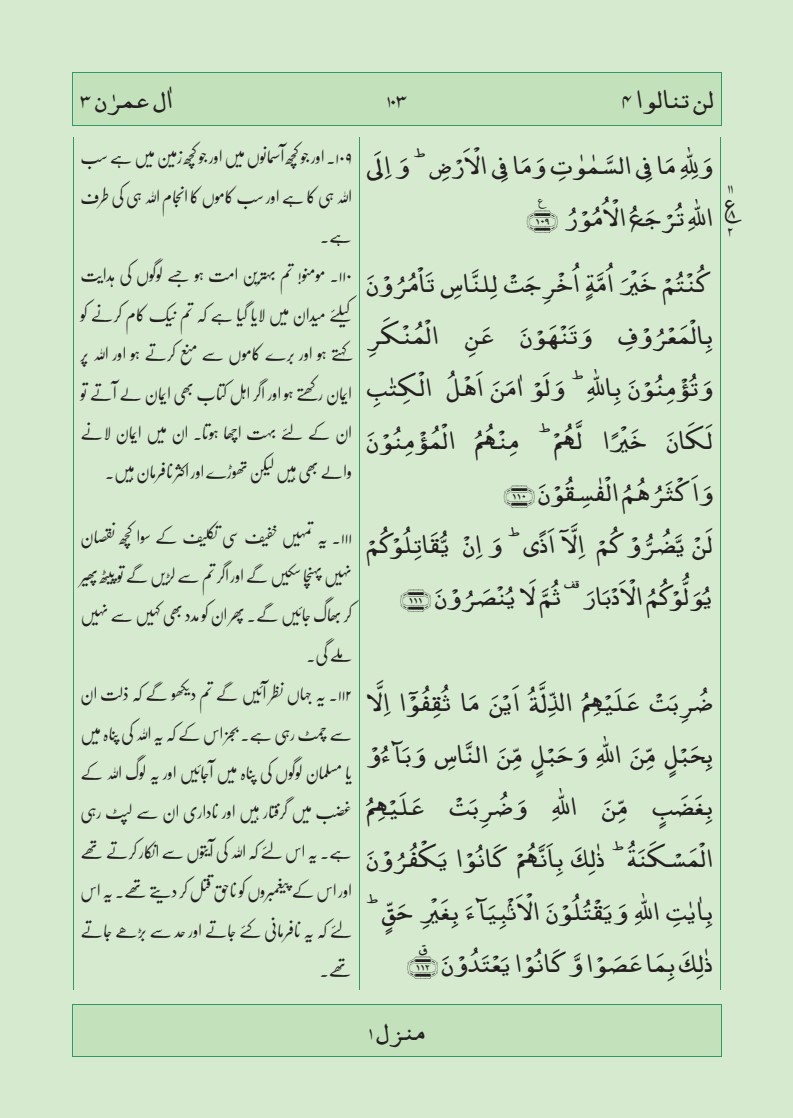 لن تنالوا ۴
۱۰۳
اٰل عمرٰن ۳
وَلِلّٰهِ مَا فِى السَّمٰوٰتِ وَمَا فِى الْاَرْضِ ؕ وَ اِلَى
اللّٰهِ تُرْجَعُ الْاُمُوْرُ ۧ ﴿۱۰۹﴾
كُنْتُمْ خَيْرَ اُمَّةٍ اُخْرِجَتْ لِلنَّاسِ تَاْمُرُوْنَ
بِالْمَعْرُوْفِ وَتَنْهَوْنَ عَنِ الْمُنْكَرِ
وَتُؤْمِنُوْنَ بِاللّٰهِ ؕ وَلَوْ اٰمَنَ اَهْلُ الْكِتٰبِ
لَكَانَ خَيْرًا لَّهُمْ ؕ مِنْهُمُ الْمُؤْمِنُوْنَ
وَاَكْثَرُهُمُ الْفٰسِقُوْنَ ﴿۱۱۰﴾
لَنْ يَّضُرُّوْكُمْ اِلَّاۤ اَذًى ؕ وَ اِنْ يُّقَاتِلُوْكُمْ
يُوَلُّوْكُمُ الْاَدْبَارَ ۟ قف ثُمَّ لَا يُنْصَرُوْنَ ﴿۱۱۱﴾
ضُرِبَتْ عَلَيْهِمُ الذِّلَّةُ اَيْنَ مَا ثُقِفُوْۤا اِلَّا
بِحَبْلٍ مِّنَ اللّٰهِ وَحَبْلٍ مِّنَ النَّاسِ وَبَآءُوْ
بِغَضَبٍ مِّنَ اللّٰهِ وَضُرِبَتْ عَلَيْهِمُ
الْمَسْكَنَةُ ؕ ذٰلِكَ بِاَنَّهُمْ كَانُوْا يَكْفُرُوْنَ
بِاٰيٰتِ اللّٰهِ وَيَقْتُلُوْنَ الْاَنْۢبِيَآءَ بِغَيْرِ حَقٍّ ؕ
ذٰلِكَ بِمَا عَصَوْا وَّ كَانُوْا يَعْتَدُوْنَ ق ﴿۱۱۲﴾
۱۰۹۔ اور جو کچھ آسمانوں میں اور جو کچھ زمین میں ہے سب
اللہ ہی کا ہے اور سب کاموں کا انجام اللہ ہی کی طرف
ہے۔
۱۱۰۔ مومنو! تم بہترین امت ہو جسے لوگوں کی ہدایت
کیلئے میدان میں لایا گیا ہے کہ تم نیک کام کرنے کو
کہتے ہو اور برے کاموں سے منع کرتے ہو اور اللہ پر
ایمان رکھتے ہو اور اگر اہل کتاب بھی ایمان لے آتے تو
ان کے لئے بہت اچھا ہوتا۔ ان میں ایمان لانے
والے بھی ہیں لیکن تھوڑے اور اکثر نافرمان ہیں۔
۱۱۱۔ یہ تمہیں خفیف سی تکلیف کے سوا کچھ نقصان
نہیں پہنچا سکیں گے اور اگر تم سے لڑیں گے تو پیٹھ پھیر
کر بھاگ جائیں گے۔ پھر ان کو مدد بھی کہیں سے نہیں
ملے گی۔
۱۱۲۔ یہ جہاں نظر آئیں گے تم دیکھو گے کہ ذلت ان
سے چمٹ رہی ہے۔ بجز اس کے کہ یہ اللہ کی پناہ میں
یا مسلمان لوگوں کی پناہ میں آجائیں اور یہ لوگ اللہ کے
غضب میں گرفتار ہیں اور ناداری ان سے لپٹ رہی
ہے۔ یہ اس لئے کہ اللہ کی آیتوں سے انکار کرتے تھے
اور اس کے پیغمبروں کو ناحق قتل کر دیتے تھے۔ یہ اس
لئے کہ یہ نافرمانی کئے جاتے اور حد سے بڑھے جاتے
تھے۔
منزل ۱